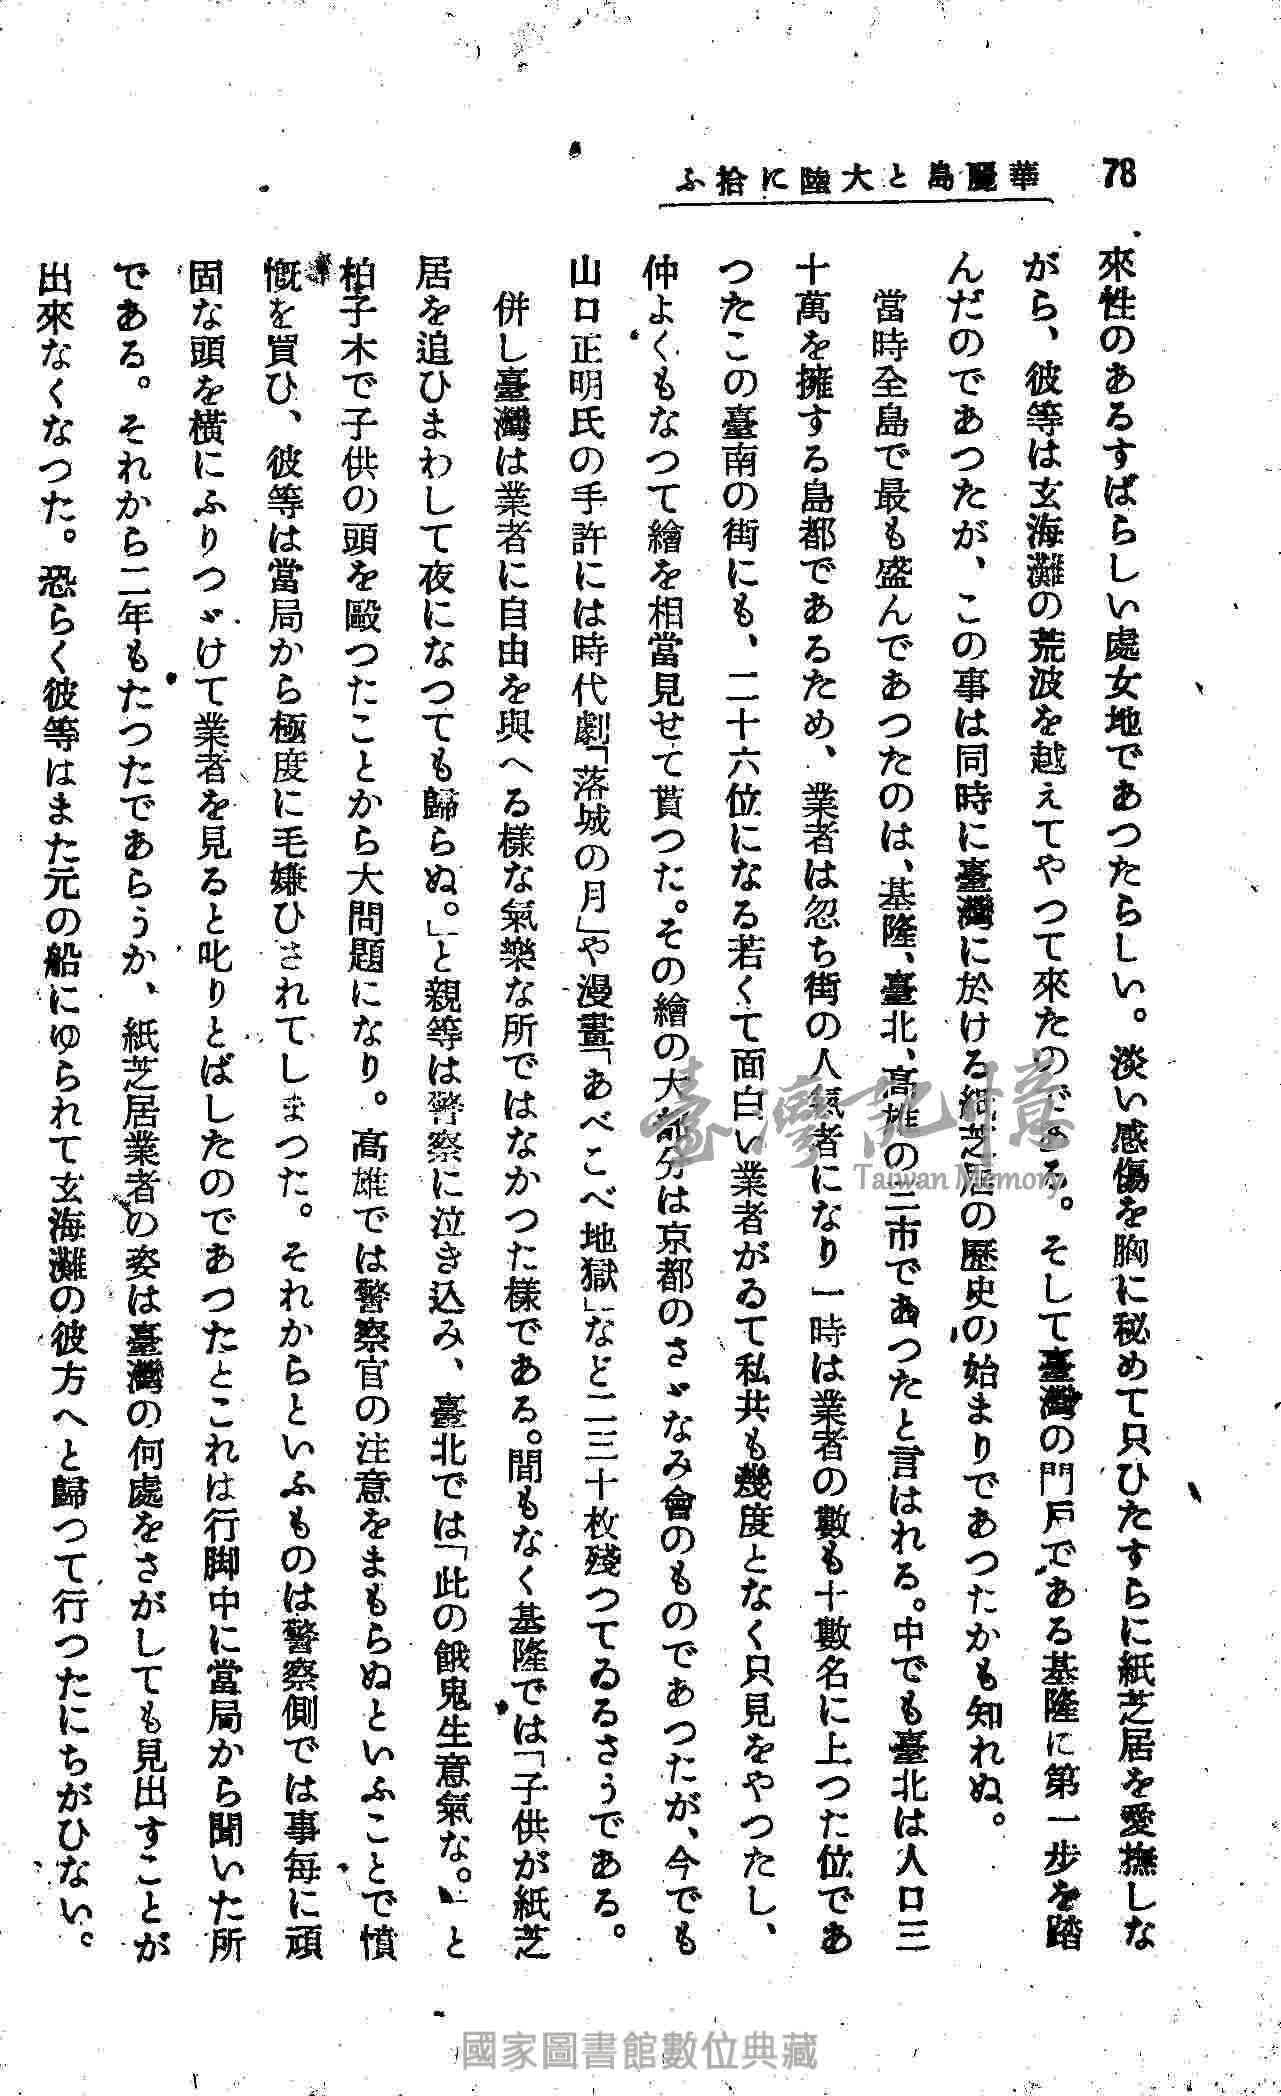 78
華麗島と大陸に拾ふ
來性のあるすばらしい處女地であつたらしい。淡い感傷を胸に秘めて只ひたすらに紙芝居を愛撫しな
がら、彼等は玄海灘の荒波を越えてやつて來たのである。そして臺灣の門戶である基隆に第一步を踏
んだのであつたが、この事は同時に臺灣に於ける紙芝居の歷史の始まりであつたかも知れぬ。
當時全島で最も盛んであつたのは、基隆、臺北、高雄の三市であつたと言はれる。中でも臺北は人口三
十萬を擁する島都であるため、業者は忽ち街の人氣者になり一時は業者の數も十數名に上つた位であ
つたこの臺南の街にも、二十六位になる若くて面白い業者がゐて私共も幾度となく只見をやつたし、
仲よくもなつて繪を相當見せて貰つた。その繪の大部分は京都のさゞなみ會のものであつたが、今でも
山口正明氏の手許には時代劇「落城の月」や漫畫「あべこべ地獄」など二三十枚殘つてゐるさうである。
併し臺灣は業者に自由を與へる樣な氣樂な所ではなかつた樣である。間もなく基隆では「子供が紙芝
居を追ひまわして夜になつても歸らぬ。」と親等は警察に泣き込み、臺北では「此の餓鬼生意氣な。」と
柏子木で子供の頭を毆つたことから大問題になり。高雄では警察官の注意をまもらぬといふことで憤
慨を買ひ、彼等は當局から極度に毛嫌ひされてしまつた。それからといふものは警察側では事每に頑
固な頭を橫にふりつゞけて業者を見ると叱りとばしたのであつたとこれは行脚中に當局から聞いた所
である。それから二年もたつたであらうか、紙芝居業者の姿は臺灣の何處をさがしても見出すことが
出來なくなつた。恐らく彼等はまた元の船にゆられて玄海灘の彼方へと歸つて行つたにちがひない。
臺灣記憶
Taiwan Memory
國家圖書館數位典藏